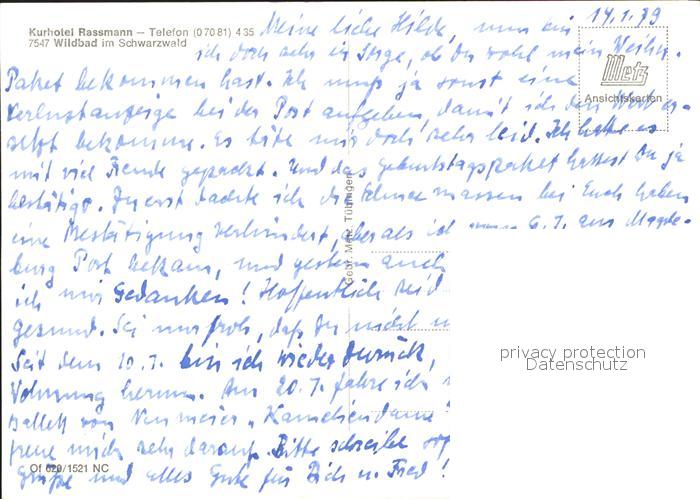 Kurhotel Rassmann – Telefon (0 70 81) 4 35
7547 Wildbad im Schwarzwald
14.1.79
Meine liebe Hilde, nun bin
ich doch sehr in Sorge, ob Du wohl mein Weihn.
Metz
Ansichtskarten
Paket bekommen hast. Ich muß ja sonst eine
Verlustanzeige bei der Post aufgeben, damit ich den Wert er-
setzt bekomme. Es täte mir doch sehr leid. Ich hatte es
mit viel Freude gepackt. Und das Geburtstagspaket hattest Du ja
bestätigt. Zuerst dachte ich die Schneemassen bei Euch haben
eine Bestätigung verhindert, aber als ich 6.1. aus Magde-
burg Post bekam, und gestern auch
ich mir Gedanken! Hoffentlich seid
gesund. Sei nur froh, daß Du nicht
Seit dem 10.1. bin ich wieder zurück,
Wohnung herum. Am 20.1. fahre ich
Ballett von Neumeier "Kameliendame"
freue mich sehr darauf. Bitte schreibe
Grüße und alles Gute für Dich u. Fred!
Gebr. Metz, Tübingen
privacy protection
Datenschutz
Of 629/1521 NC